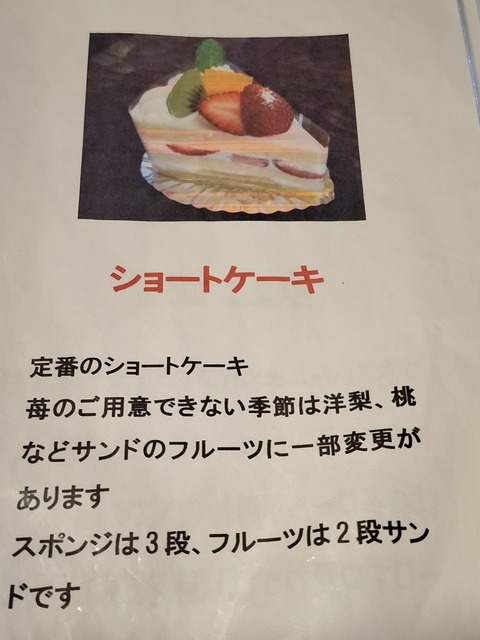 ショートケーキ
定番のショートケーキ
苺のご用意できない季節は洋梨、桃
などサンドのフルーツに一部変更が
あります
スポンジは3段、フルーツは2段サン
ドです